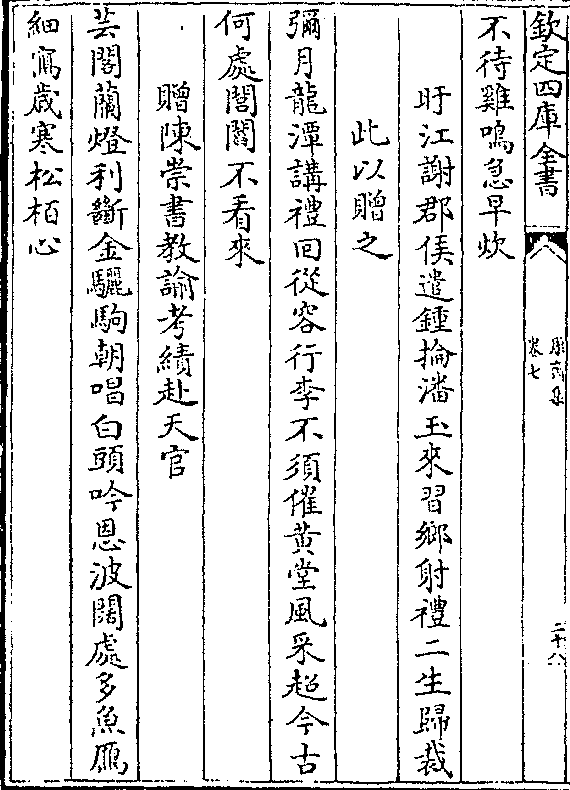 欽定四庫全書
康齋集
卷七
二十八
不待雞鳴急早炊
盱江謝郡侯遣鍾掄潘玉來習鄉射禮二生歸裁
此以贈之
彌月龍潭講禮回從容行李不須催黄堂風采超今古
何處閭閻不看來
贈陳崇書教諭考績赴天官
芸閣蘭燈利斷金驪駒朝唱白頭吟恩波闊處多魚鴈
細寫歲寒松栢心